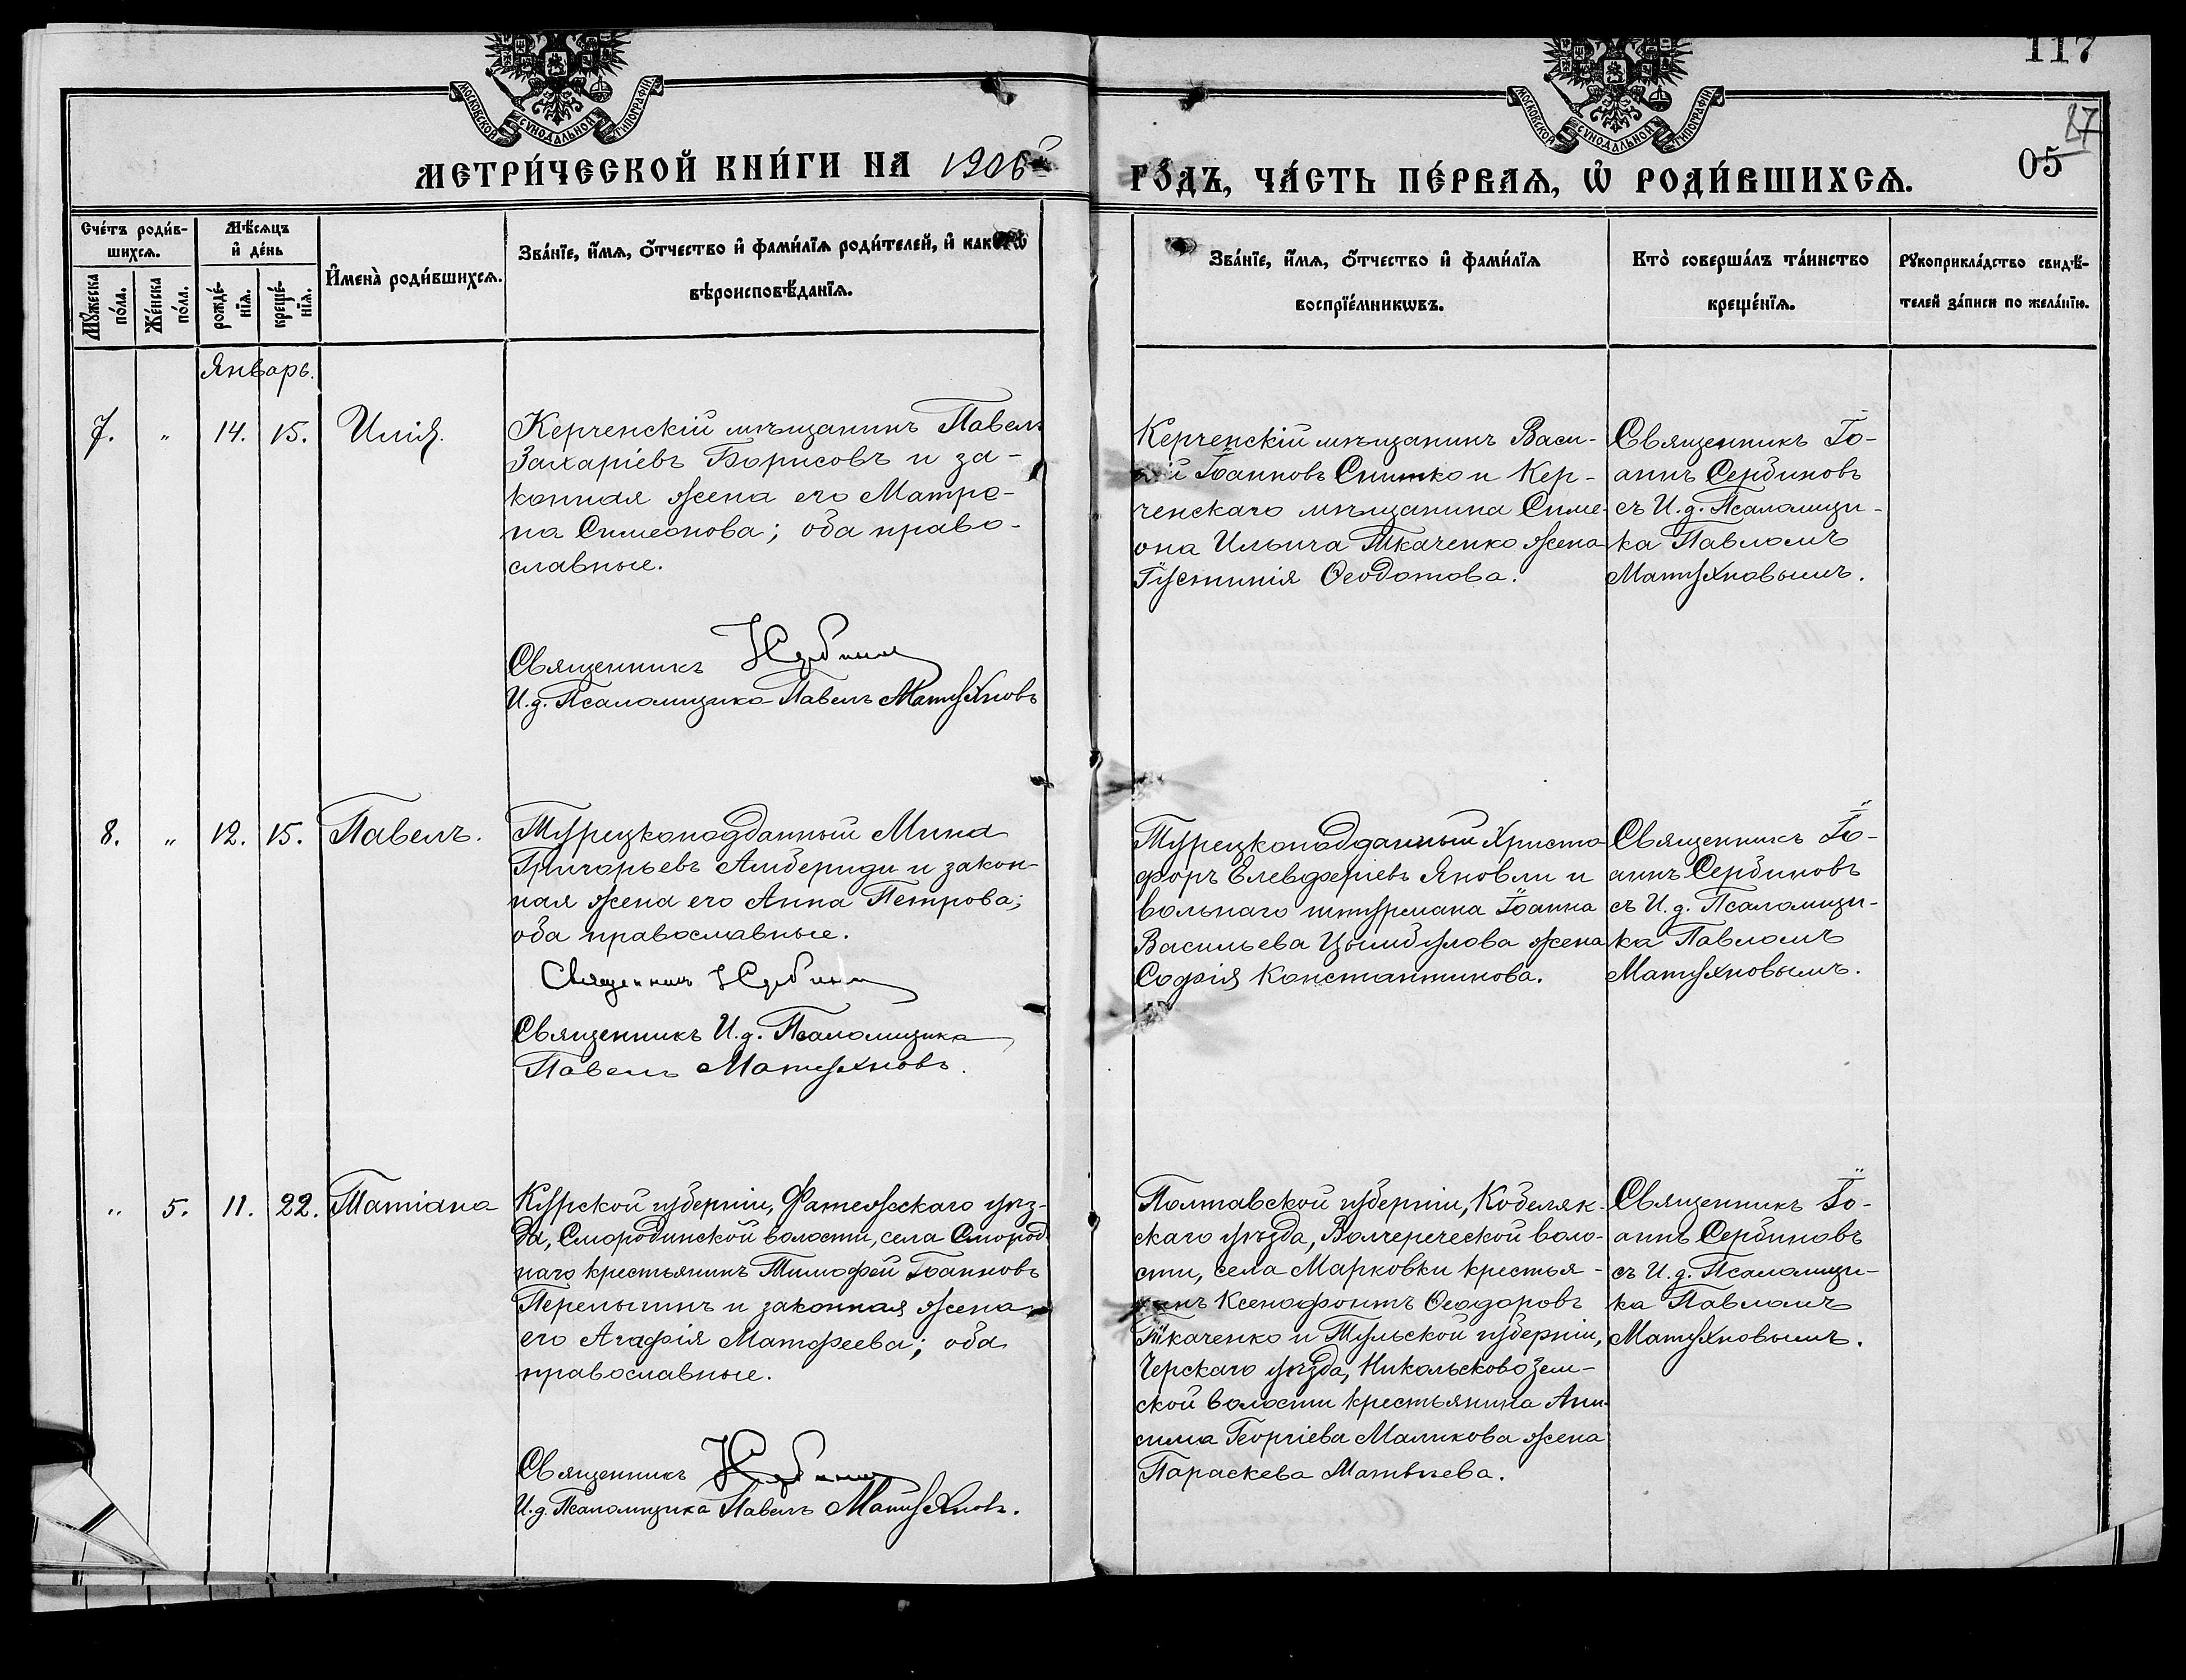 117
87
05
МОСКОВСКОЙ СѴНОДАЛЬНОЙ ТИПОГРАФІИ
МОСКОВСКОЙ СѴНОДАЛЬНОЙ ТИПОГРАФІИ
МЕТРИ́ЧЕСКОЙ КНИ́ГИ НА 1906 ГО́ДЪ, ЧА́СТЬ ПЕ́РВАѦ, Ѡ РОДИ́ВШИХСѦ.
Сче́тъ роди́в-
шихсѧ.
Мꙋ́жеска по́ла.
Же́нска по́ла.
Мѣ́сѧцъ
и҆ де́нь
рожде́-
нїѧ.
креще́-
нїѧ.
И҆мена̀ роди́вшихсѧ.
Зва́нїе, и҆́мѧ, ѻ҆́тчество и҆ фами́лїѧ роди́телей, и҆
вѣроисповѣ́данїѧ.
Зва́нїе, и҆́мѧ, ѻ҆́тчество и҆ фами́лїѧ
воспрїе́мникѡвъ.
Кто̀ соверша́лъ та́инство
креще́нїѧ.
Рꙋкоприкла́дство свидѣ́-
телей за́писи по жела́нїю.
Январь.
7. „ 14. 15. Илія.
Керченскій мѣщанинъ Павелъ
Захаріевъ Борисовъ и за-
конная жена его Матро-
на Симеонова; оба право-
славные.
Священникъ
И.д. Псаломщика Павелъ Матухновъ
Керченскій мѣщанинъ Васи-
лій Іоанновъ Снитко и Кер-
ченскаго мѣщанина Симе-
она Ильича Ткаченко жена
Іустинія Ѳеодотова.
Священникъ Іо-
аннъ Сербиновъ
съ И.д. Псаломщи-
ка Павломъ
Матухновымъ.
8. „ 12. 15. Павелъ.
Турецкоподданный Мина
Григорьевъ Амбериди и закон-
ная жена его Анна Петрова;
оба православные.
Священникъ
Священникъ И.д. Псаломщика
Павелъ Матухновъ.
Турецкоподданный Христо-
форъ Елевферіевъ Яновли и
вольнаго штурмана Іоанна
Васильева Цымбулова жена
Софія Константинова.
Священникъ Іо-
аннъ Сербиновъ
съ И.д. Псаломщи-
ка Павломъ
Матухновымъ.
„ 5. 11. 22. Татіана
Курской губерніи, Фатежскаго уѣз-
да, Смородинской волости, села Смород-
наго крестьянинъ Тимофей Іоанновъ
Перелыгинъ и законная жена
его Агафія Матфеева; оба
православные.
Священникъ
И.д. Псаломщика Павелъ Матухновъ.
Полтавской губерніи, Кобеляк-
скаго уѣзда, Волчереческой воло-
сти, села Марковки крестья-
нинъ Ксенофонтъ Ѳеодоровъ
Ткаченко и Тульской губерніи,
Черскаго уѣзда, Никольсково Зем-
ской волости крестьянина Ани-
сима Георгіева Маликова жена
Параскева Матвѣева.
Священникъ Іо-
аннъ Сербиновъ
съ И.д. Псаломщи-
ка Павломъ
Матухновымъ.